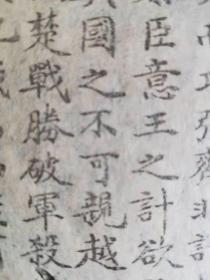 齊非計
臣意王之計欲
國之不可親越
楚戰勝破軍殺